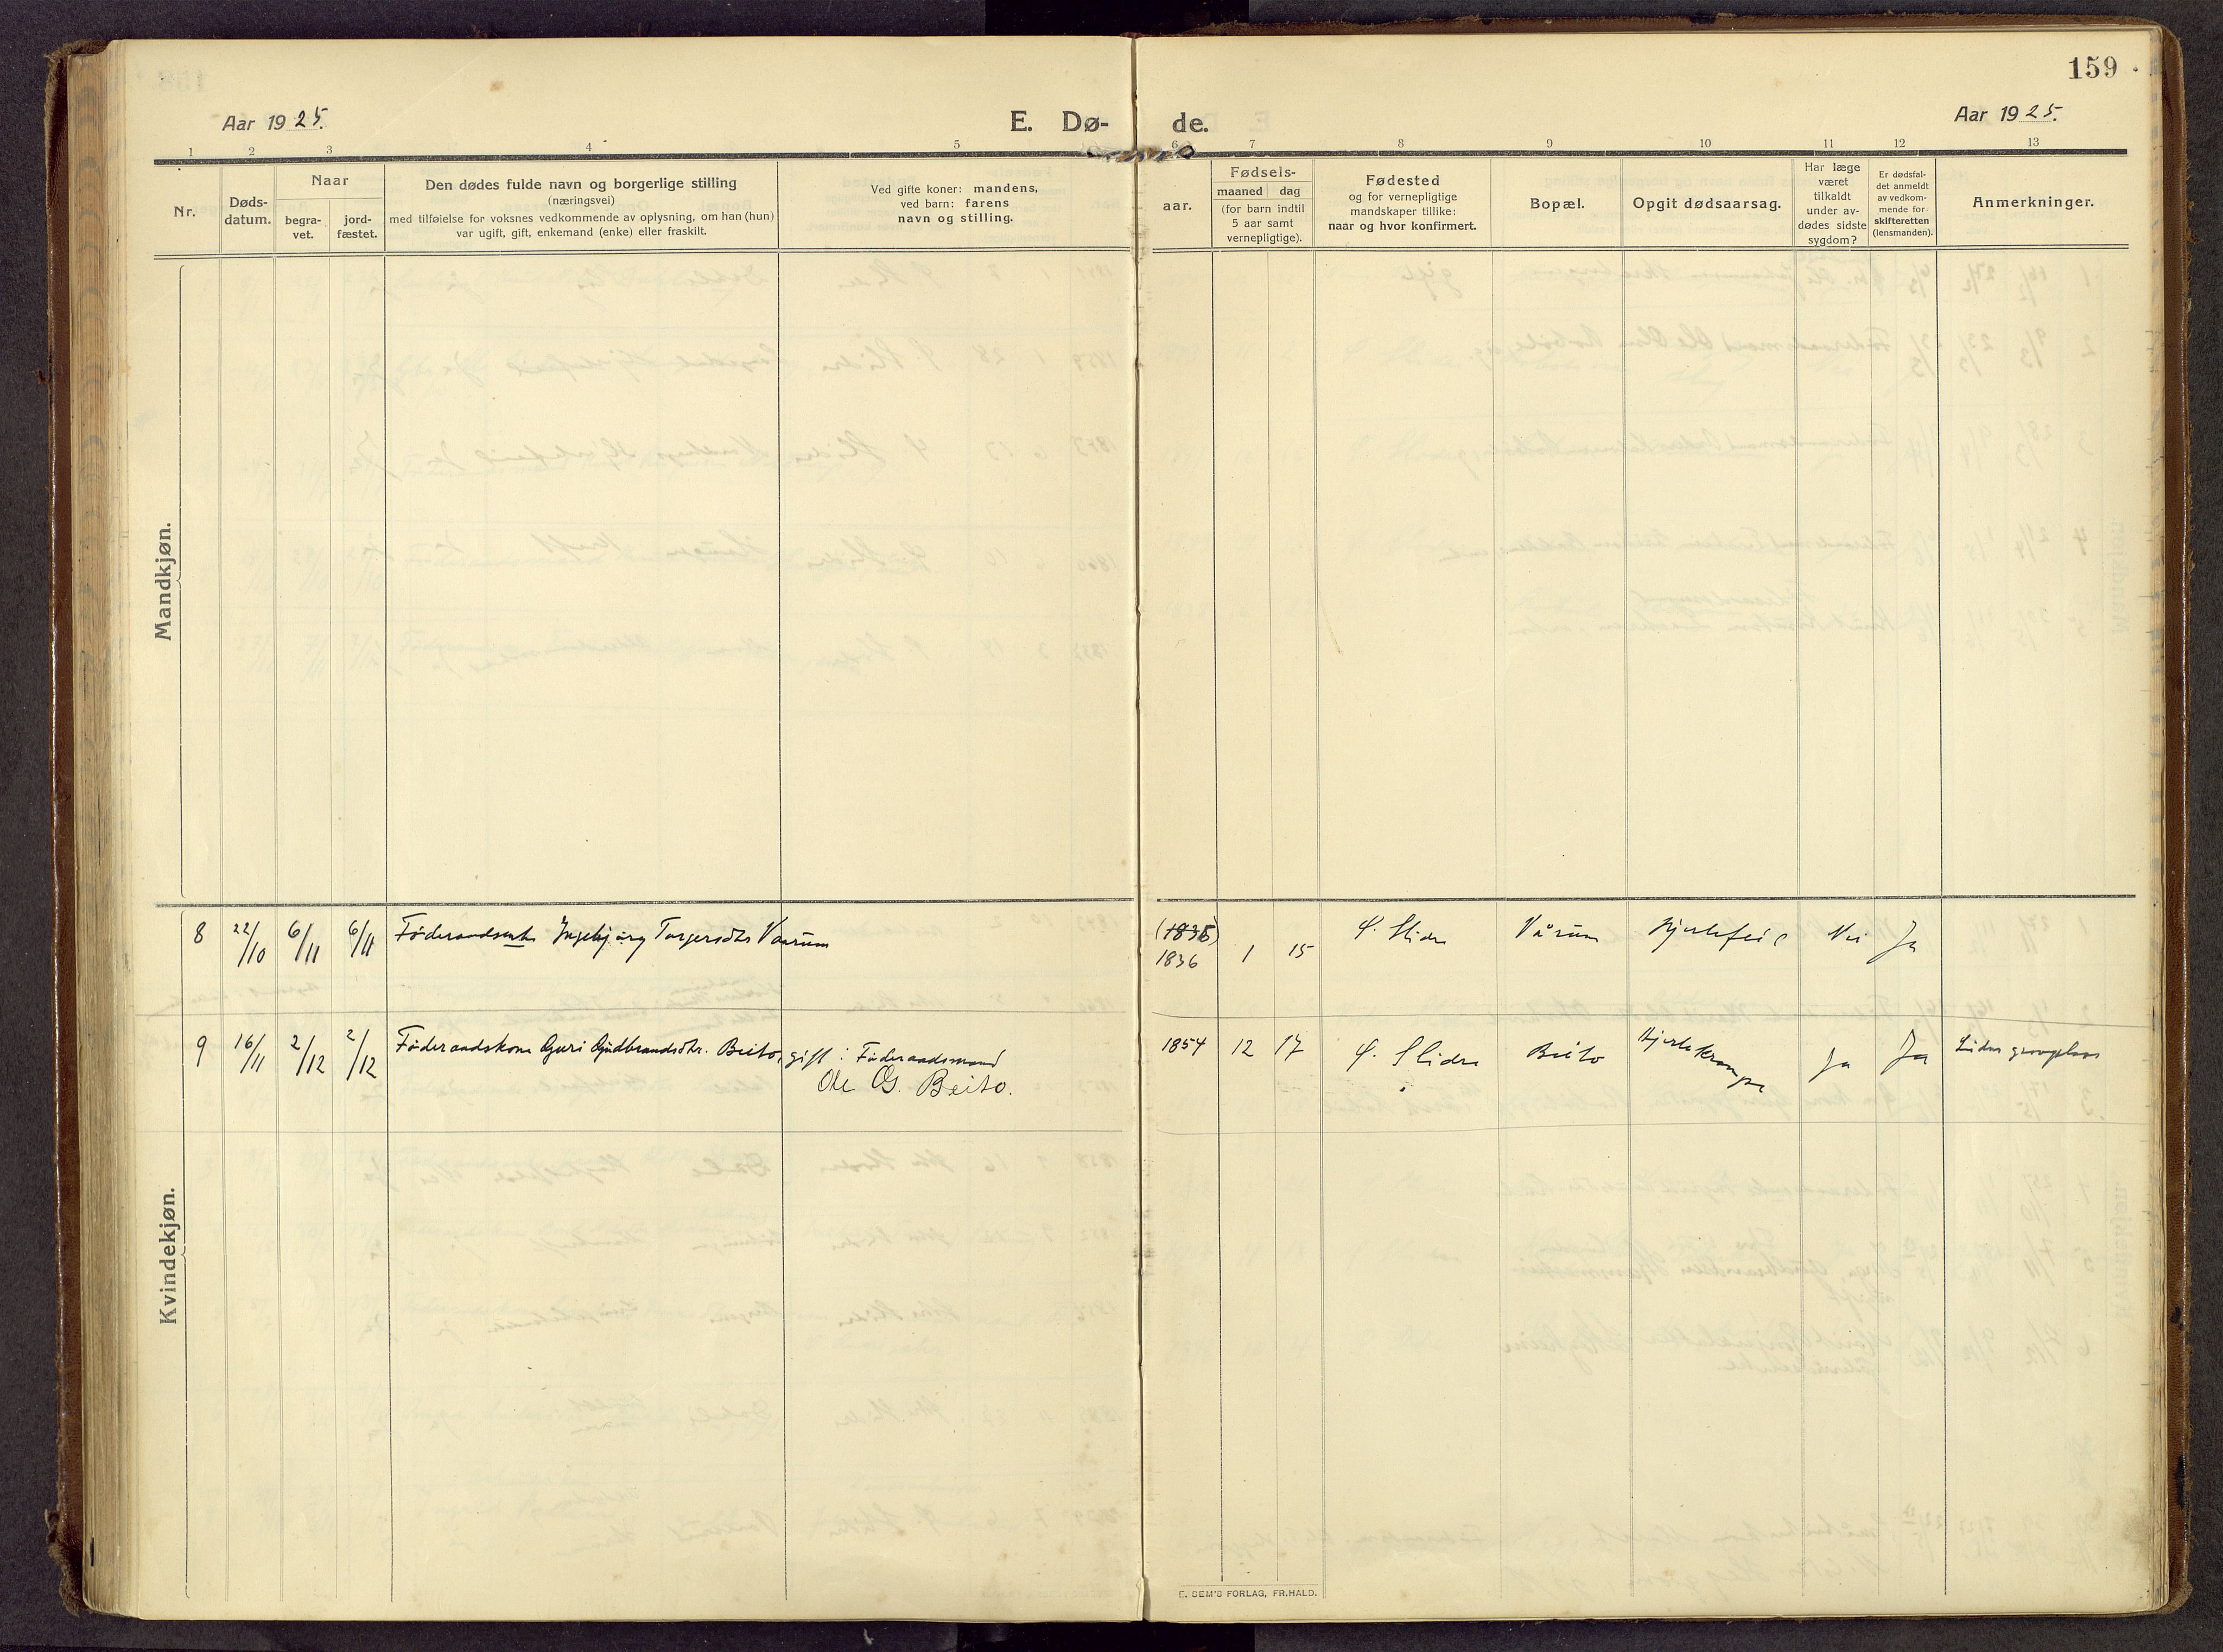 159
Aar 1925.
E. Dø- de.
Aar 1925.
1 2 3 4 5 6 7 8 9 10 11 12 13
Nr.
Døds-
datum.
Naar
begra-
vet.
jord-
fæstet.
Den dødes fulde navn og borgerlige stilling
(næringsvei)
med tilføielse for voksnes vedkommende av oplysning, om han (hun)
var ugift, gift, enkemand (enke) eller fraskilt.
Ved gifte koner: mandens,
ved barn: farens
navn og stilling.
Fødsels-
aar.
maaned dag
(for barn indtil
5 aar samt
vernepligtige).
Fødested
og for vernepligtige
mandskaper tillike:
naar og hvor konfirmert.
Bopæl.
Opgit dødsaarsag.
Har læge
været
tilkaldt
under av-
dødes sidste
sygdom?
Er dødsfal-
det anmeldt
av vedkom-
mende for
skifteretten
(lensmanden).
Anmerkninger.
Mandkjøn.
8 22/10 6/11 6/11 Føderaadsenke Ingebjørg Torgersdtr Vaarum (1835) Ø. Slidre Vårum Hjertefeil Nei Ja
1836 1 15
9 16/11 2/12 2/12 Føderaadskone Guri Gudbrandsdtr. Beito, gift: Føderaadsmand 1854 12 17 Ø. Slidre Beito Hjertekrampe Ja Ja Lidar gravplass
Ole G. Beito.
Kvindekjøn.
E. SEM'S FORLAG, FR.HALD.